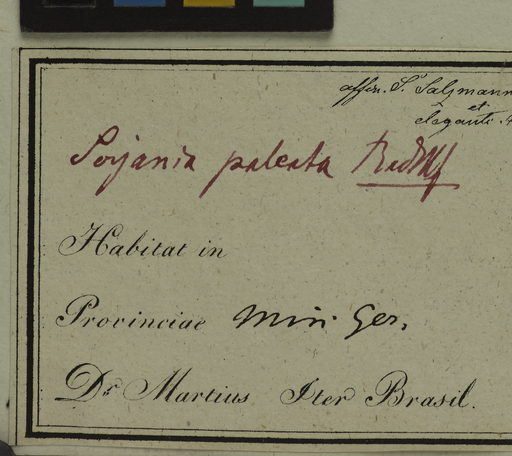 affin. S. Salzmann
et
eleganti.
Serjania paleata Radlkf
Habitat in
Provinciae Min. Ger.
Dr. Martius Iter Brasil.